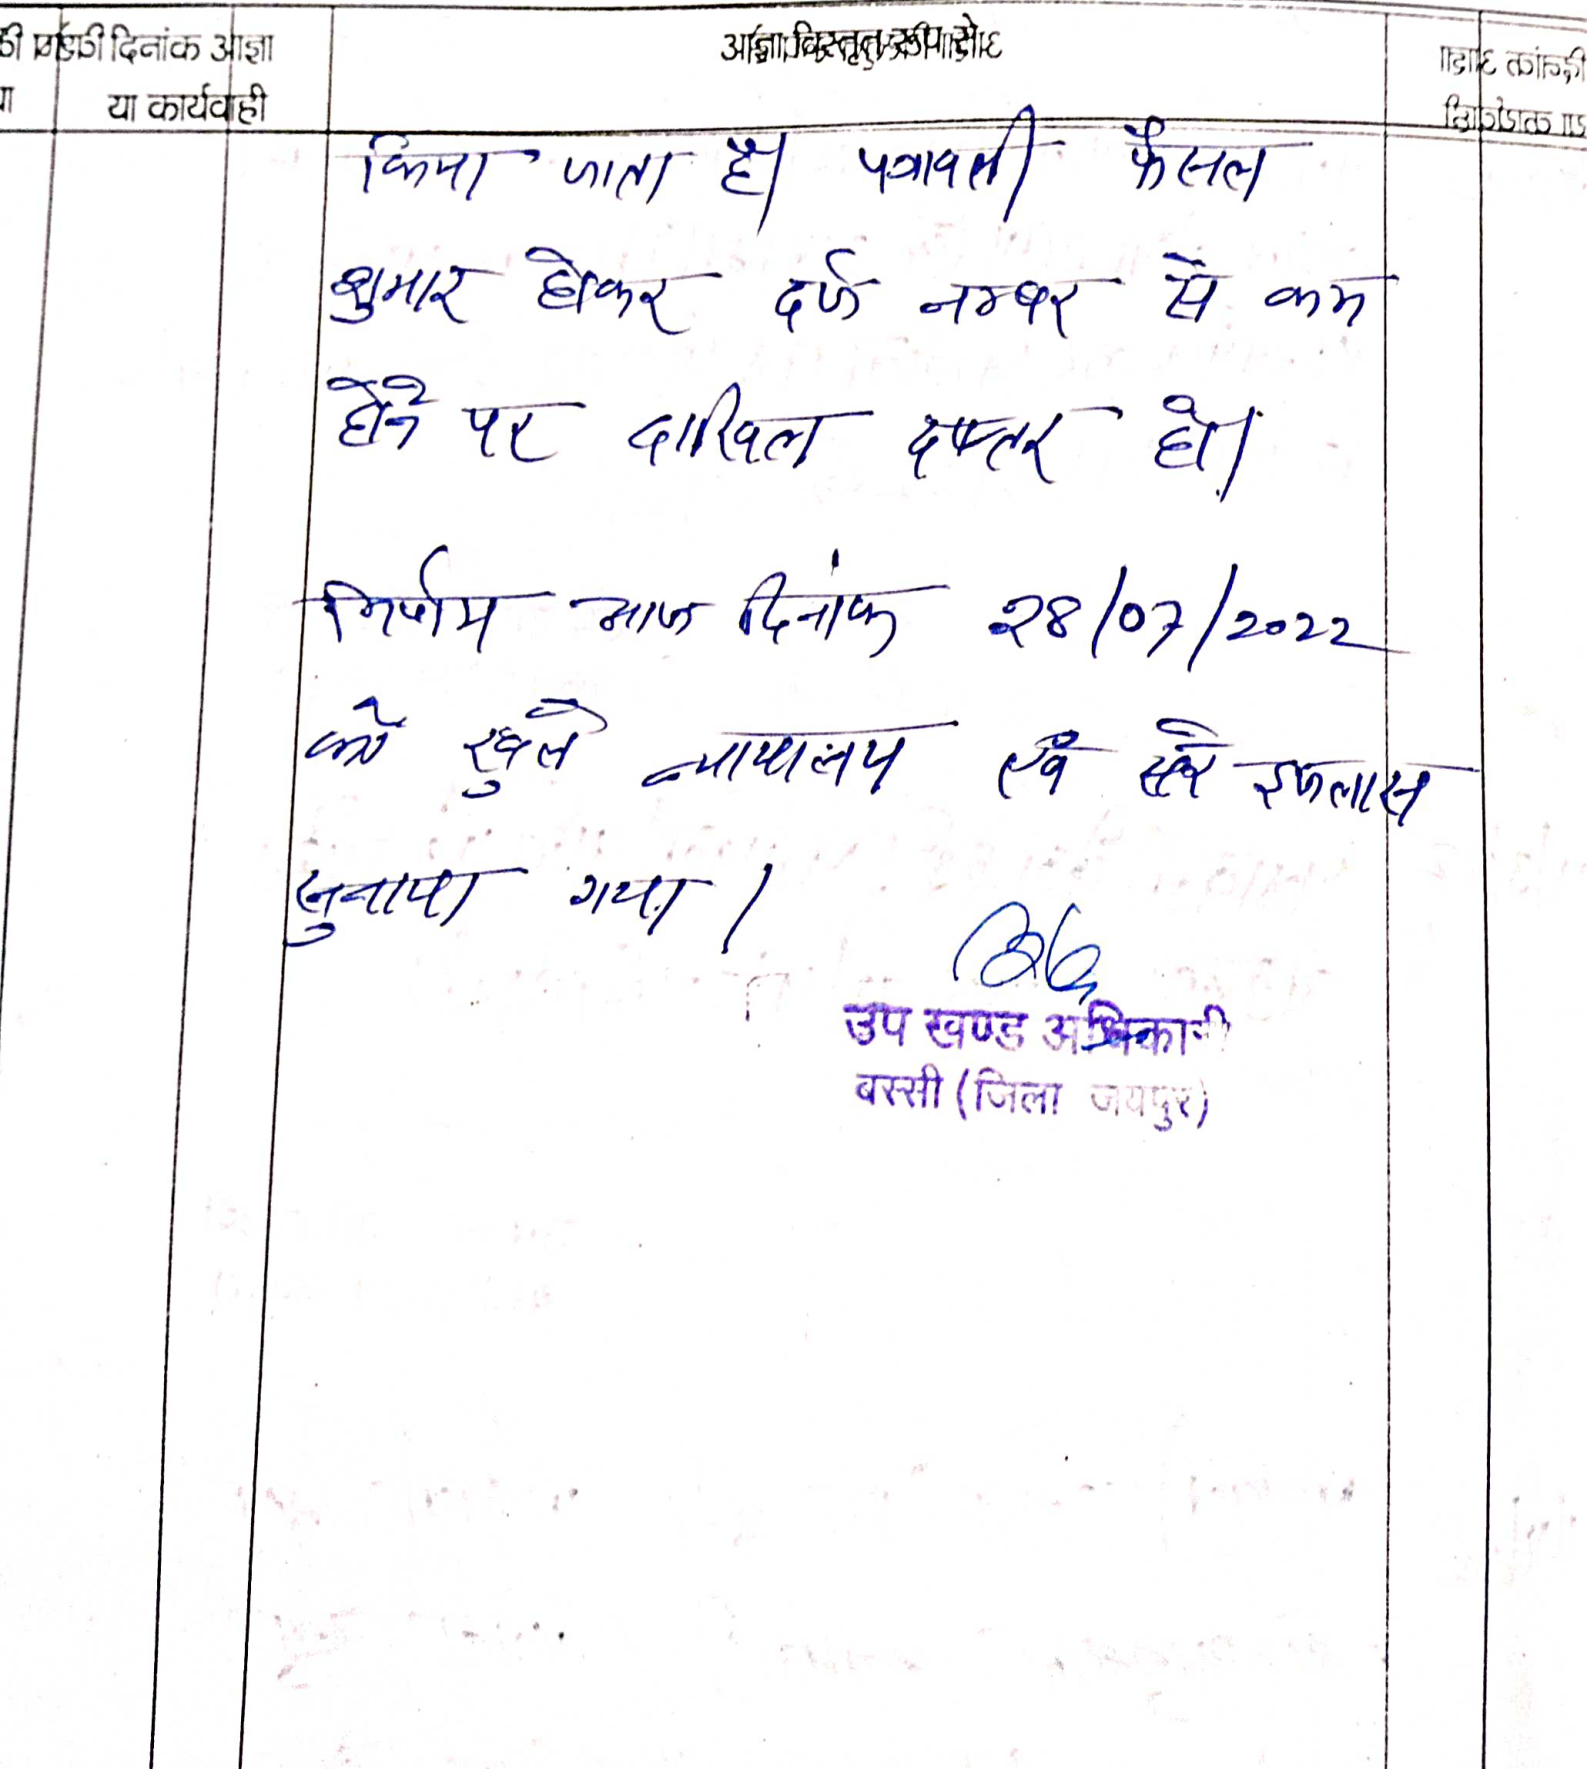 दिनांक आज्ञा
या कार्यवाही
आज्ञा विस्तृत रूप से
किया जाता है। पत्रावली फैसल
शुमार होकर दर्ज नम्बर से कम
होने पर दाखिल दफ्तर हो।
निर्णय आज दिनांक 28/07/2022
को खुले न्यायालय एवं सरे इजलास
सुनाया गया।
उप खण्ड अधिकारी
बस्सी (जिला जयपुर)